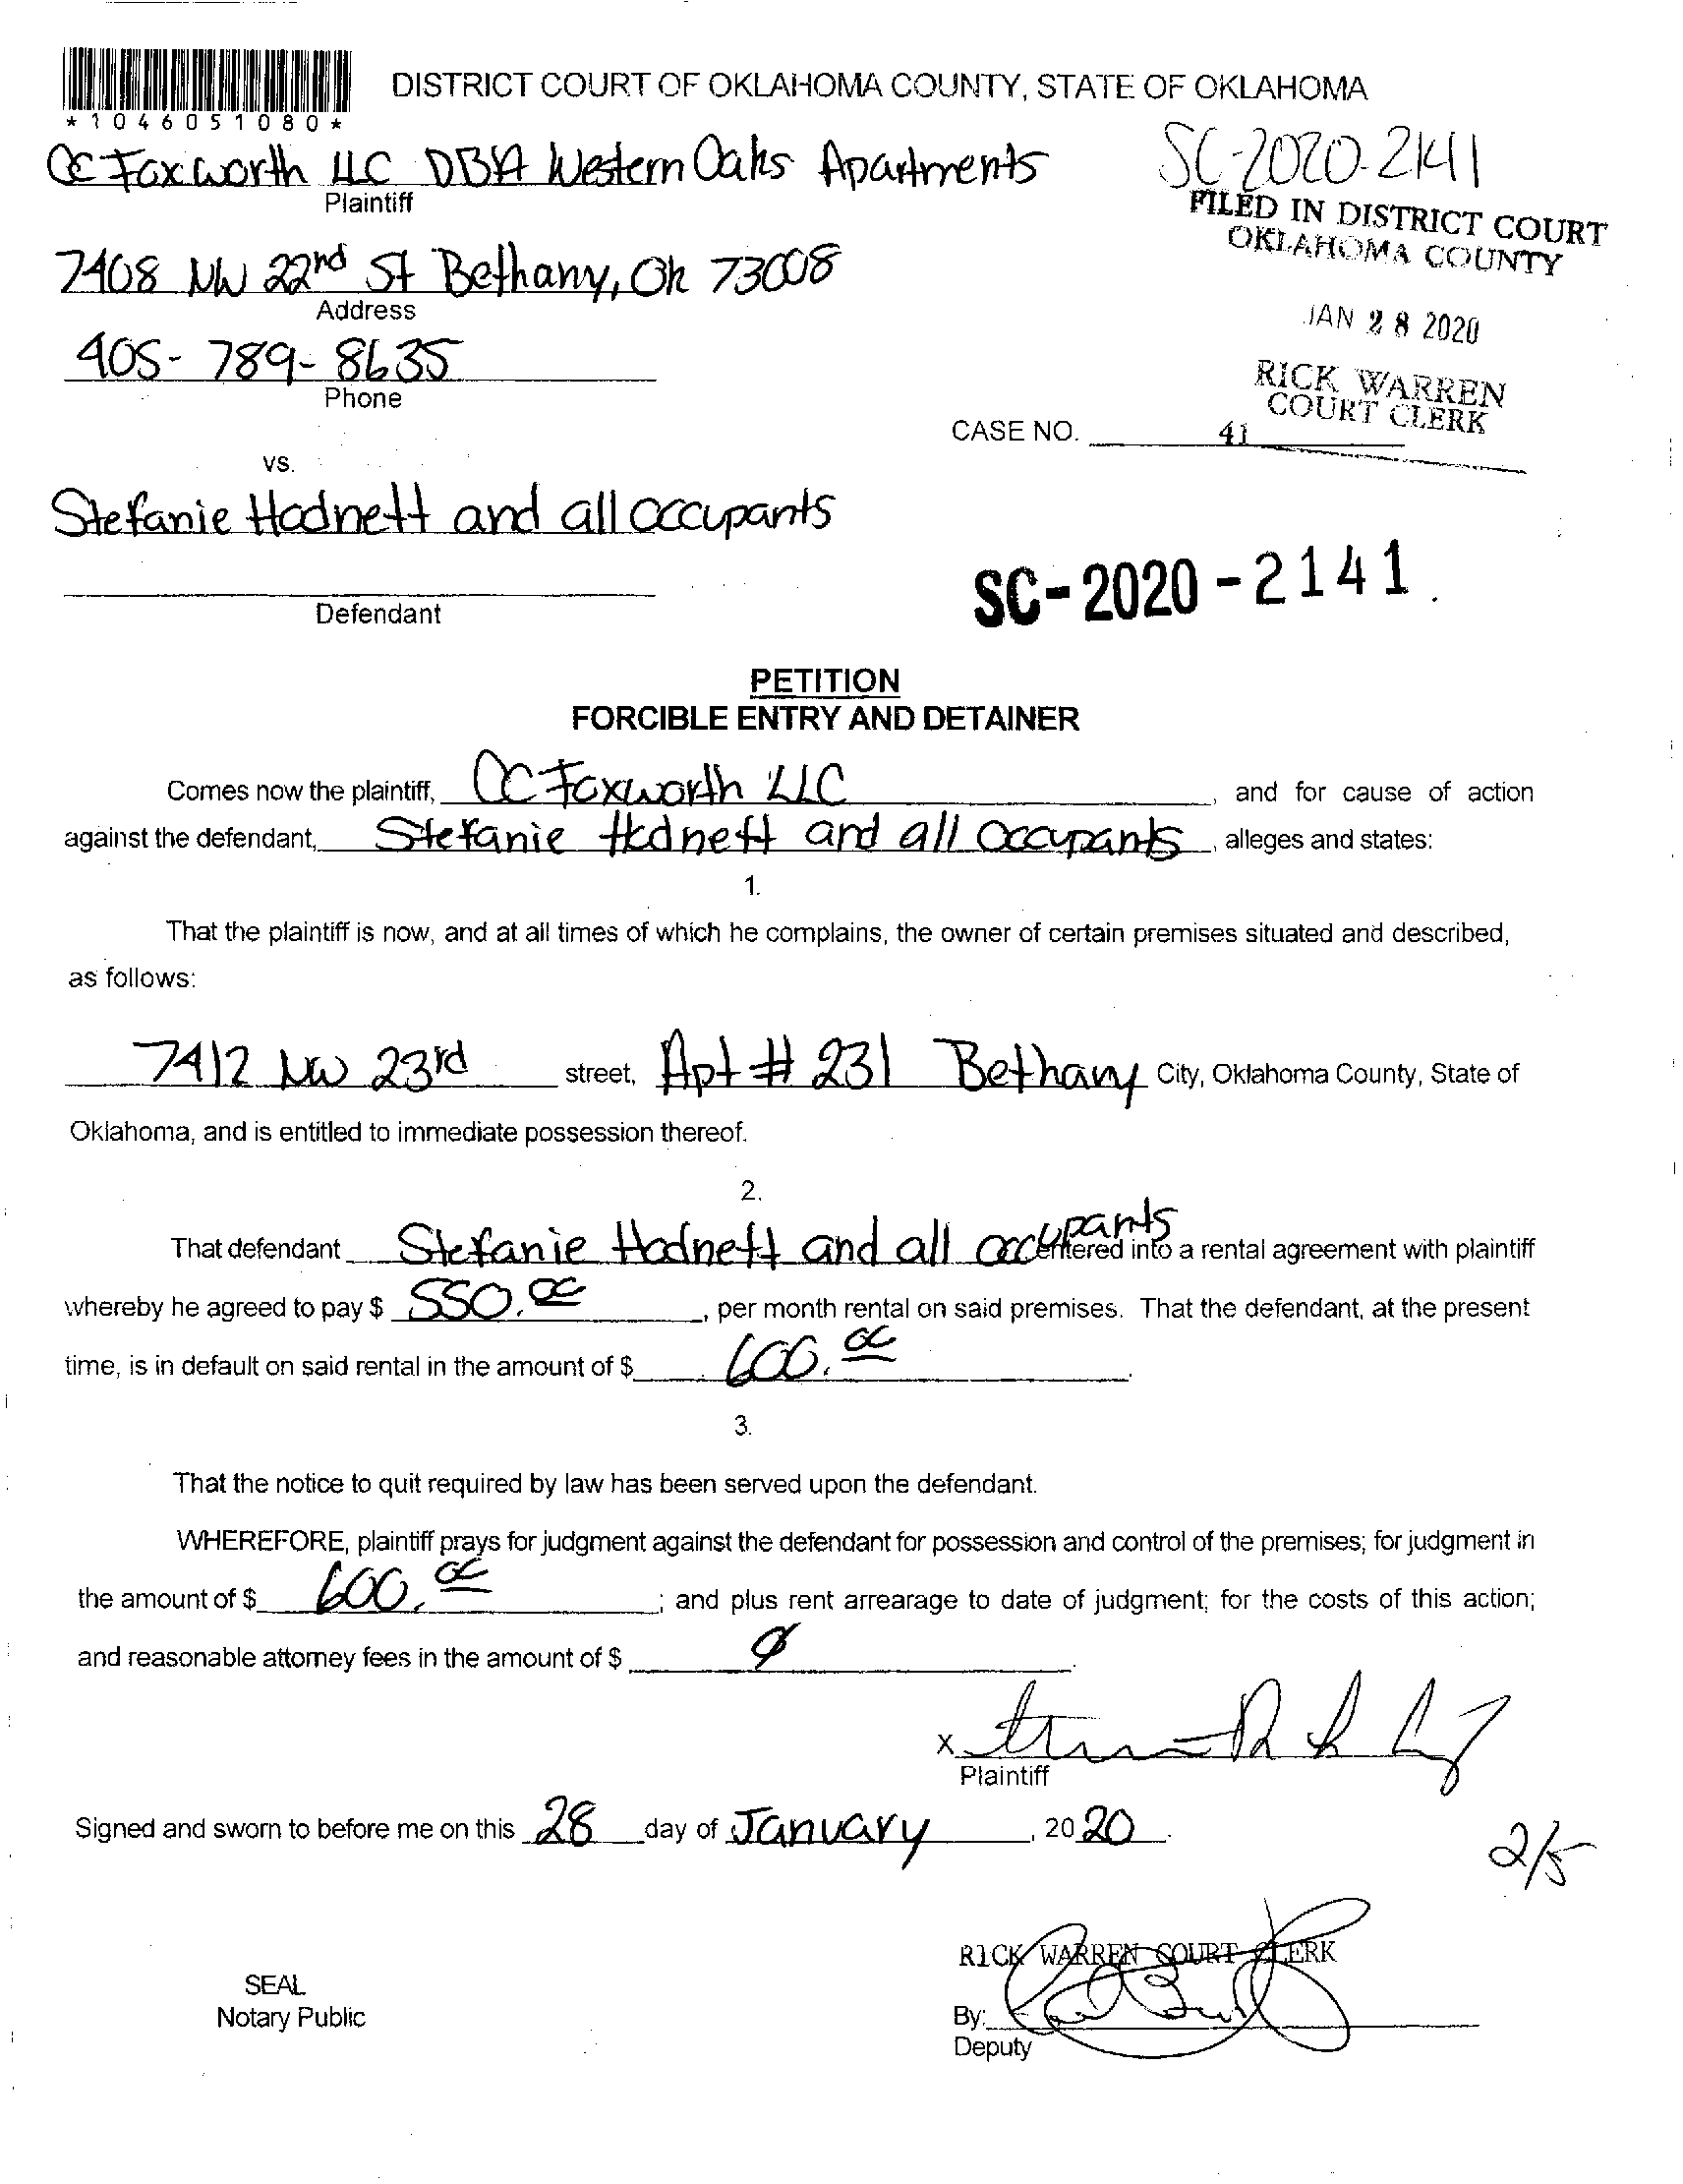 DISTRICT COURT OF OKLAHOMA COUNTY, STATE OF OKLAHOMA
*1046051080*
CC Foxworth LLC DBA Western Oaks Apartments
SC-2020-2141
Plaintiff
FILED IN DISTRICT COURT
OKLAHOMA COUNTY
7408 NW 22nd St Bethany, Ok 73008
Address
JAN 28 2020
405-789-8635
Phone
RICK WARREN
COURT CLERK
CASE NO. 41
vs.
Stefanie Hodnett and all occupants
SC-2020-2141
Defendant
PETITION
FORCIBLE ENTRY AND DETAINER
Comes now the plaintiff, CC Foxworth LLC, and for cause of action
against the defendant, Stefanie Hodnett and all occupants, alleges and states:
1.
That the plaintiff is now, and at all times of which he complains, the owner of certain premises situated and described,
as follows:
7412 NW 23rd street, Apt # 231 Bethany City, Oklahoma County, State of
Oklahoma, and is entitled to immediate possession thereof.
2.
That defendant Stefanie Hodnett and all occupants entered into a rental agreement with plaintiff
whereby he agreed to pay $ 550.00, per month rental on said premises. That the defendant, at the present
time, is in default on said rental in the amount of $ 600.00.
3.
That the notice to quit required by law has been served upon the defendant.
WHEREFORE, plaintiff prays for judgment against the defendant for possession and control of the premises; for judgment in
the amount of $ 600.00; and plus rent arrearage to date of judgment; for the costs of this action;
and reasonable attorney fees in the amount of $ Ø.
x
Plaintiff
Signed and sworn to before me on this 28 day of January, 2020.
2/5
RICK WARREN COURT CLERK
SEAL
Notary Public
By:
Deputy